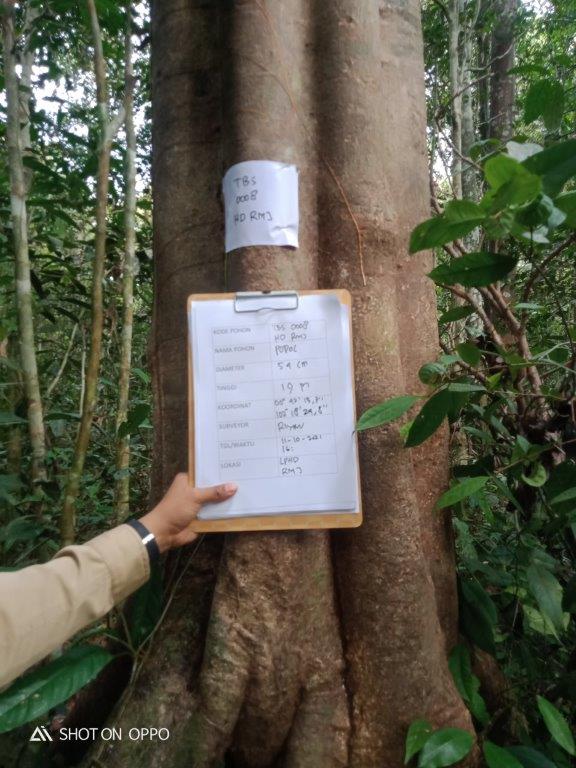 TBS
0008
HD RMJ
KODE POHON TBS 0008
HD RMJ
NAMA POHON POPOL
DIAMETER 54 cm
TINGGI 19 m
KOORDINAT
SURVEYOR
TGL/WAKTU 11-10-2021
16:
LOKASI LPHD
RMJ
SHOT ON OPPO